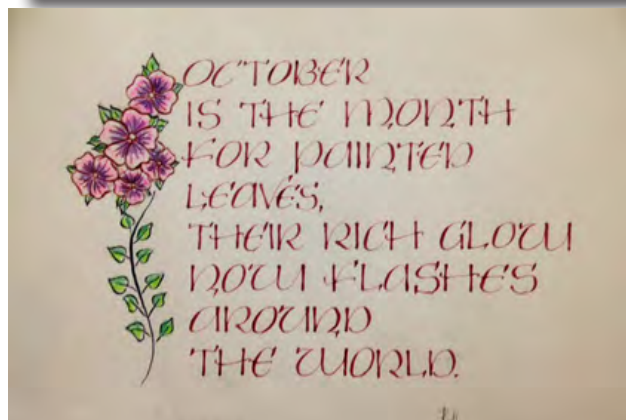 OCTOBER
IS THE MONTH
FOR PAINTED
LEAVES,
THEIR RICH GLOW
NOW FLASHES
AROUND
THE WORLD.